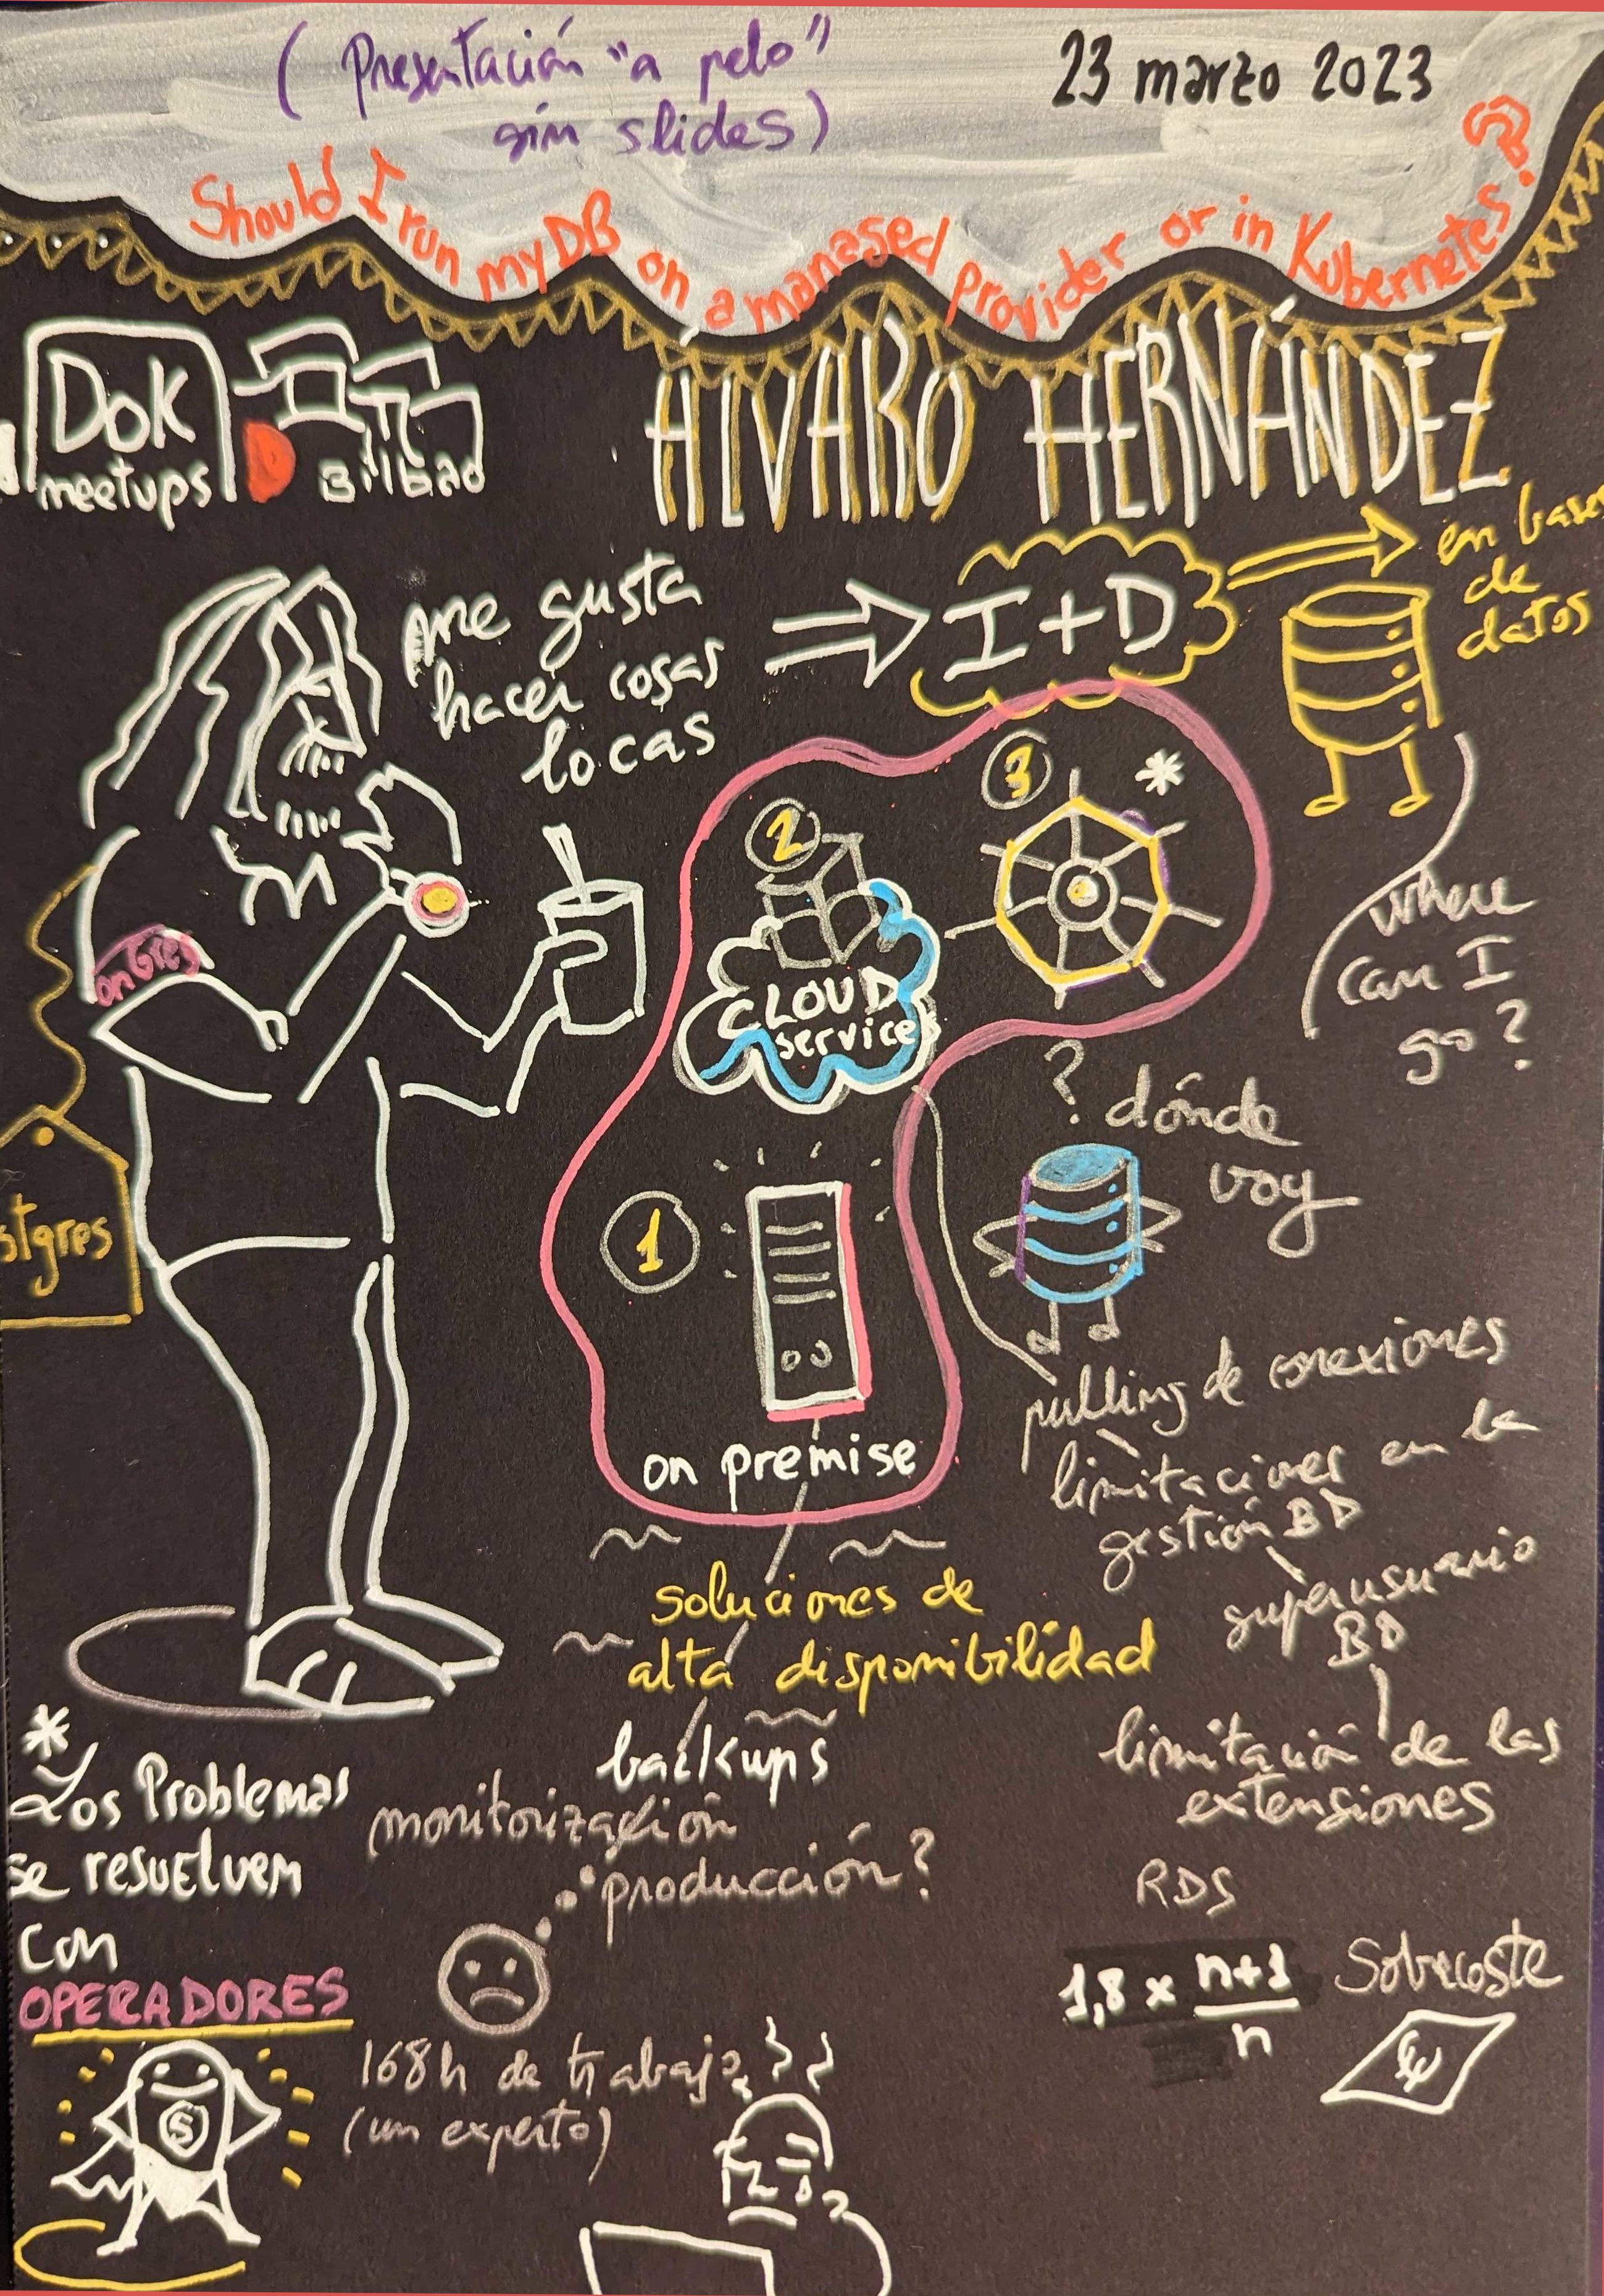 (Presentación "a pelo"
sin slides)
23 marzo 2023
Should I run my DB on a managed provider or in Kubernetes?
DoK
meetups
Bilbao
ÁLVARO HERNÁNDEZ
me gusta
hacer cosas
locas
I+D
en bases
de
datos
onGres
stgres
3
*
2
CLOUD
services
1
on premise
where
can I
go?
? dónde
voy
pulling de conexiones
limitaciones en la
gestión BD
superusuario
BD
limitación de las
extensiones
soluciones de
alta disponibilidad
backups
monitorización
producción?
*
Los Problemas
se resuelven
con
OPERADORES
S
168h de trabajo
(un experto)
RDS
1,8 x n+1
n
Sobrecoste